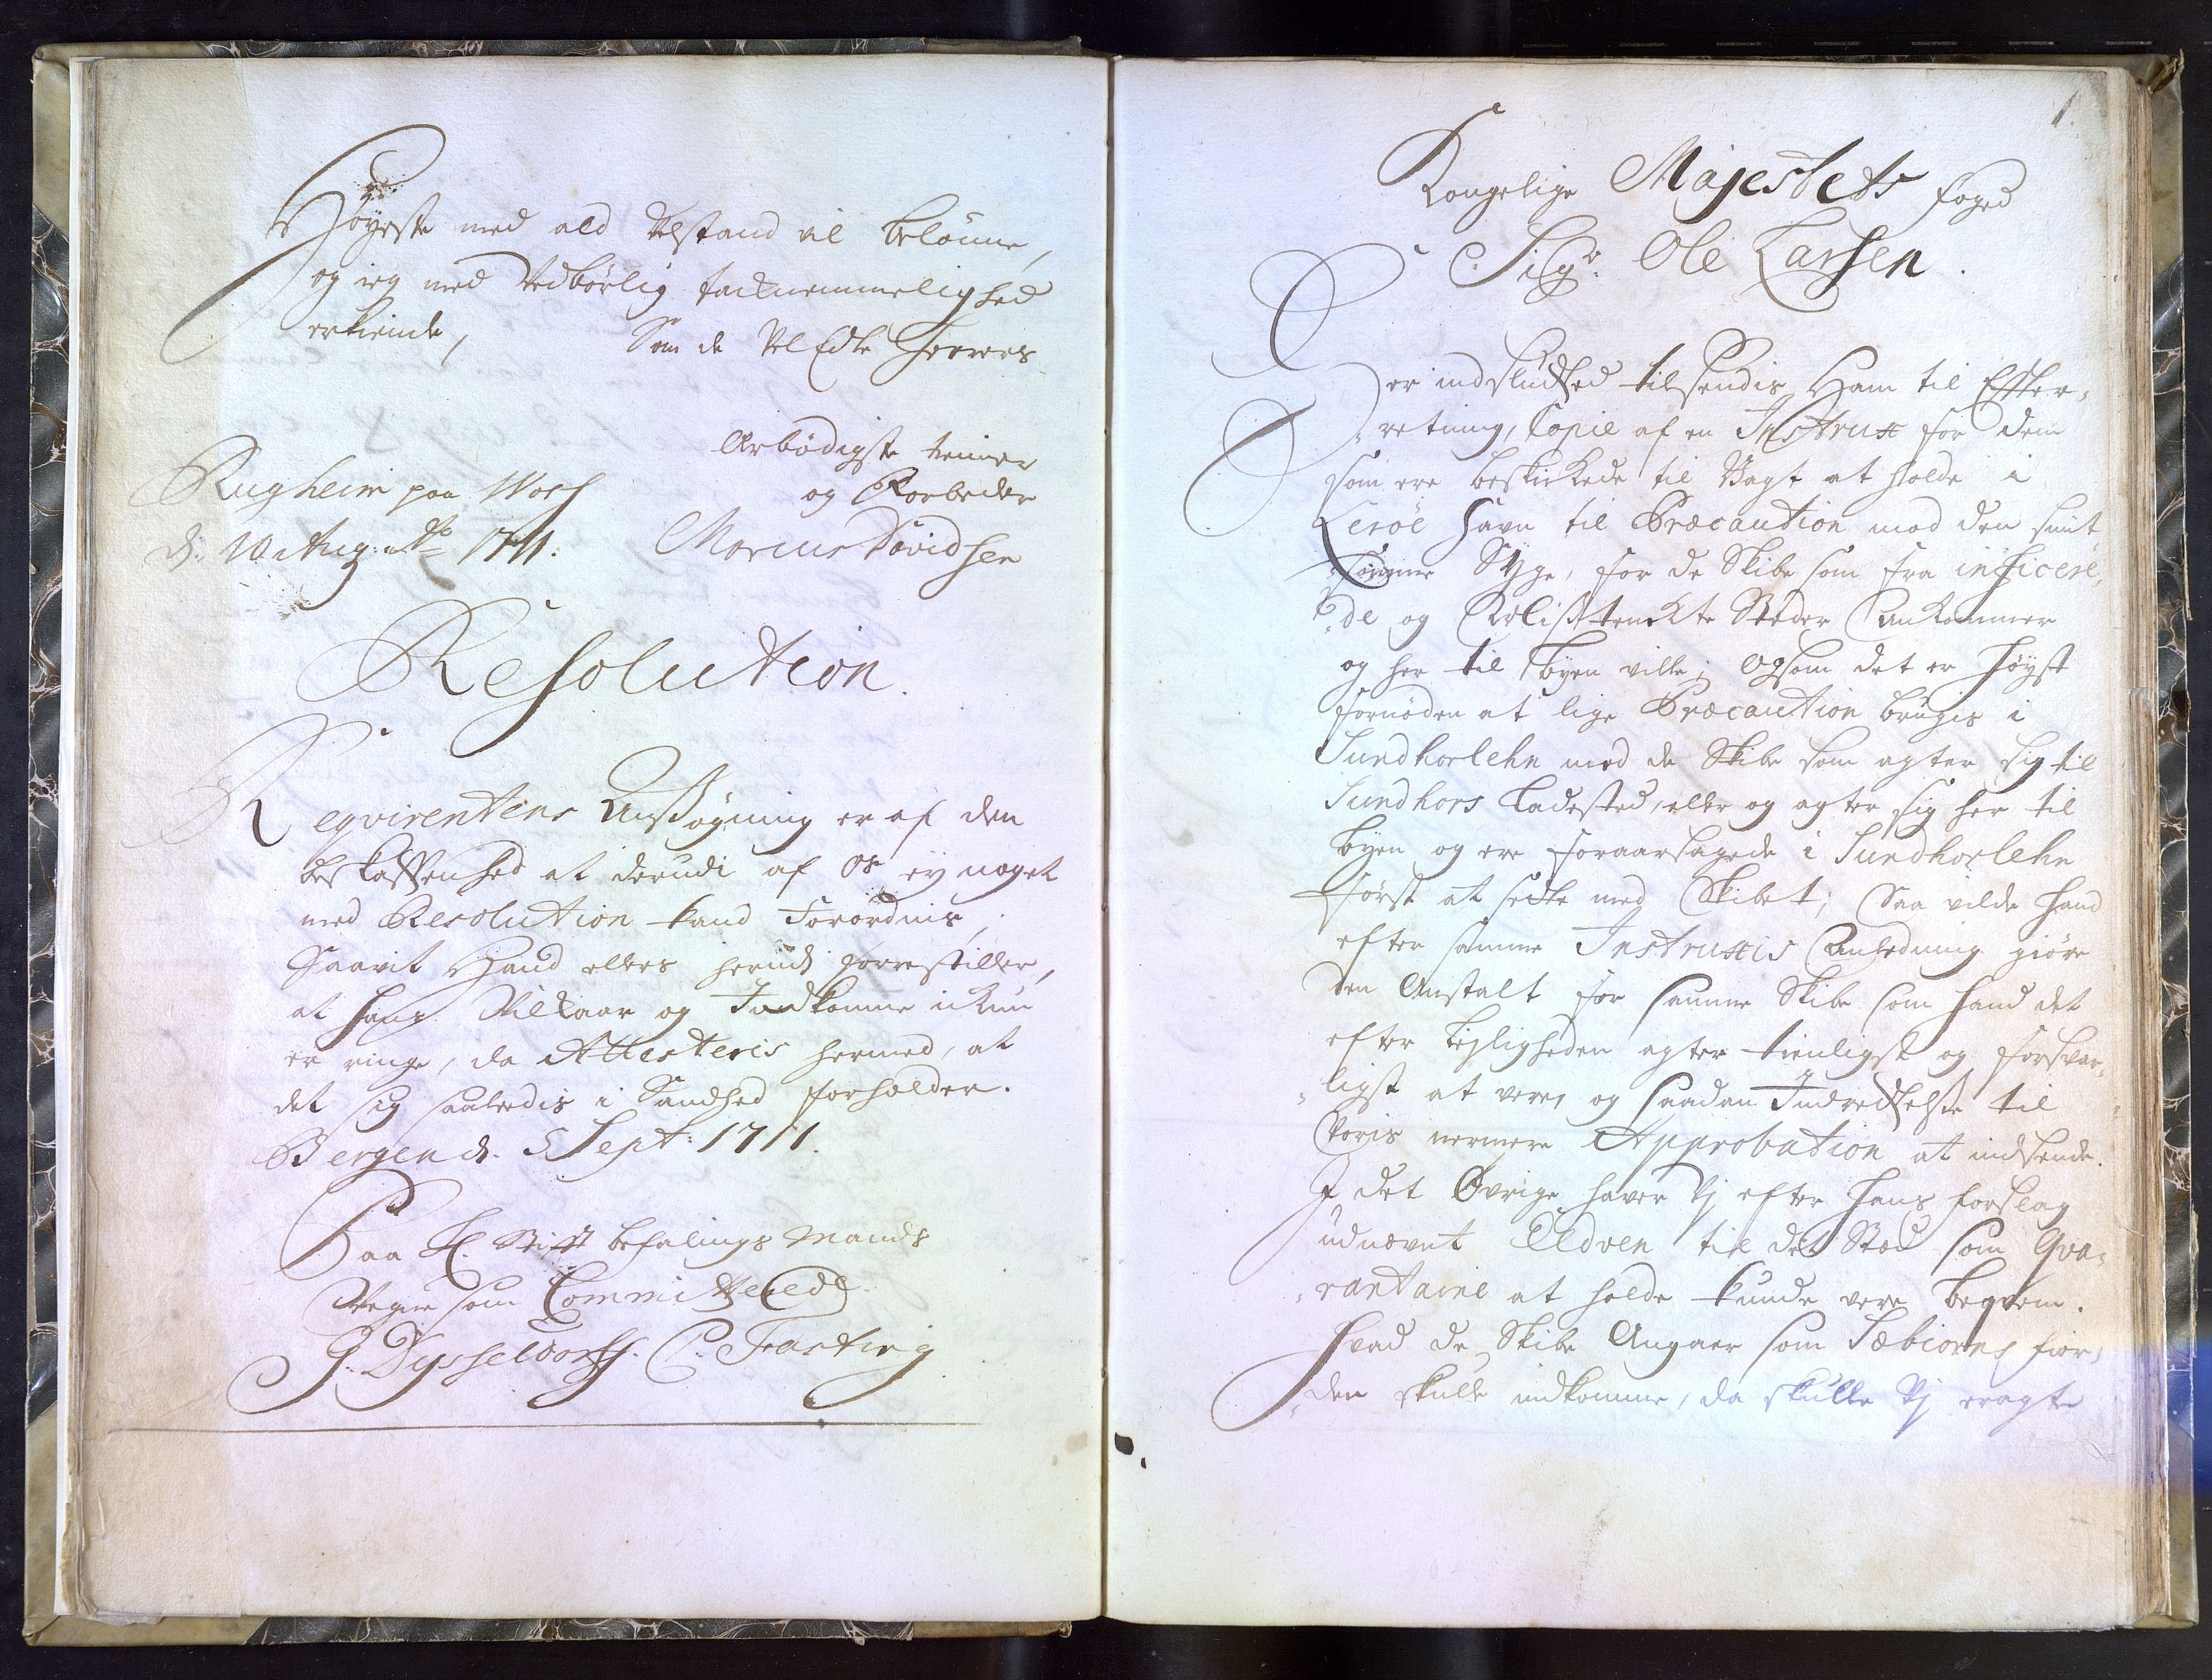 Høyeste med ald Velstand vil belønne,
og ieg med Vedbørlig tacknemmelighed
erkiende, Som de Vel Edle Herrers
Ærbødigste tienner
og Forbeder
Rugheim paa Woss
d: 10 Aug: Ao 1711. Marcus Davidsen
Resolution.
Reqvirentens Ansøgning er af den
beskaffenhed at derudi af Os ey noget
med Resolution kand Forordnis,
Saavit Hand ellers herudi forrestiller,
at hans Vilkaar og Indkomme ickun
er ringe, da Attesteris hermed, at
det sig saaledis i Sandhed forholder.
Bergen d. 5 Sept: 1711.
Paa H. Stifft befalings Mands
Vegne som Committerede
J. Dysseldorff. C. Fasting
1.
Kongelige Majestets foged
Sigr. Ole Larsen.
Her indsludted tilsendis Ham til Effter,
retning, Copie af en Instrux for dem
som ere beskickede til Vagt at holde i
Lerøe hafn til Præcaution mod den smit
somme Syge, for de Skibe som fra inficere,
de og Mistenckte Steder Ankommer
og her til byen ville; Og som det er høyst
fornøden at lige Præcaution bruges i
Sundhorlehn med de Skibe som agter sig til
Sundhors Ladested, eller og agter sig her til
byen og ere foraarsagede i Sundhorlehn
først at sette med Skibet; Saa vilde hand
efter samme Instruxis Anledning giøre
den Anstalt for samme Skibe som hand det
efter Leyligheden agter tienligst og forsvar,
ligst at vere, og saadan Indretelse til
Voris nermere Approbation at indsende.
I det Øvrige haver Vj efter hans forslag
udnævnt Eldøen til det Sted som Qva,
rantaine at holde kunde vere beqvem.
Hvad de Skibe Angaaer som Sæbiørns fior,
den skulle indkomme, da skulle Vj eragte